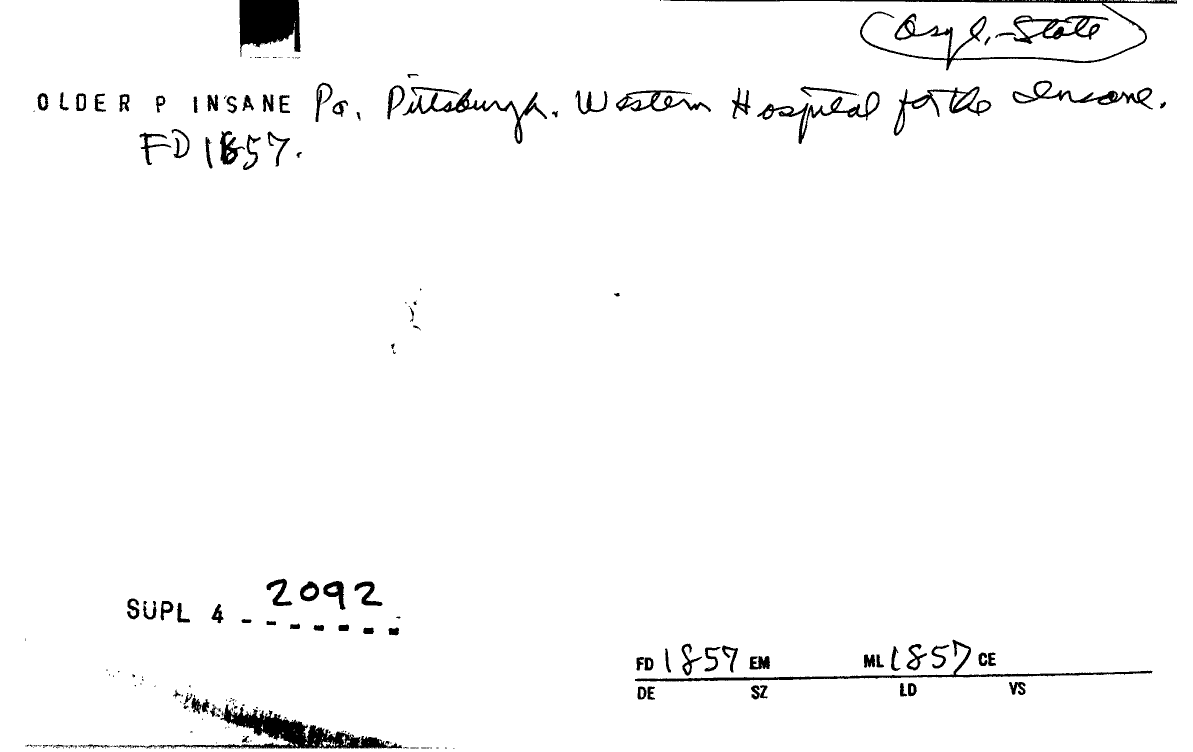 (Asyl.-State)
OLDER P INSANE Pa. Pittsburgh. Western Hospital for the Insane.
FD 1857.
SUPL 4 2092
FD 1857 EM ML 1857 CE
DE SZ LD VS